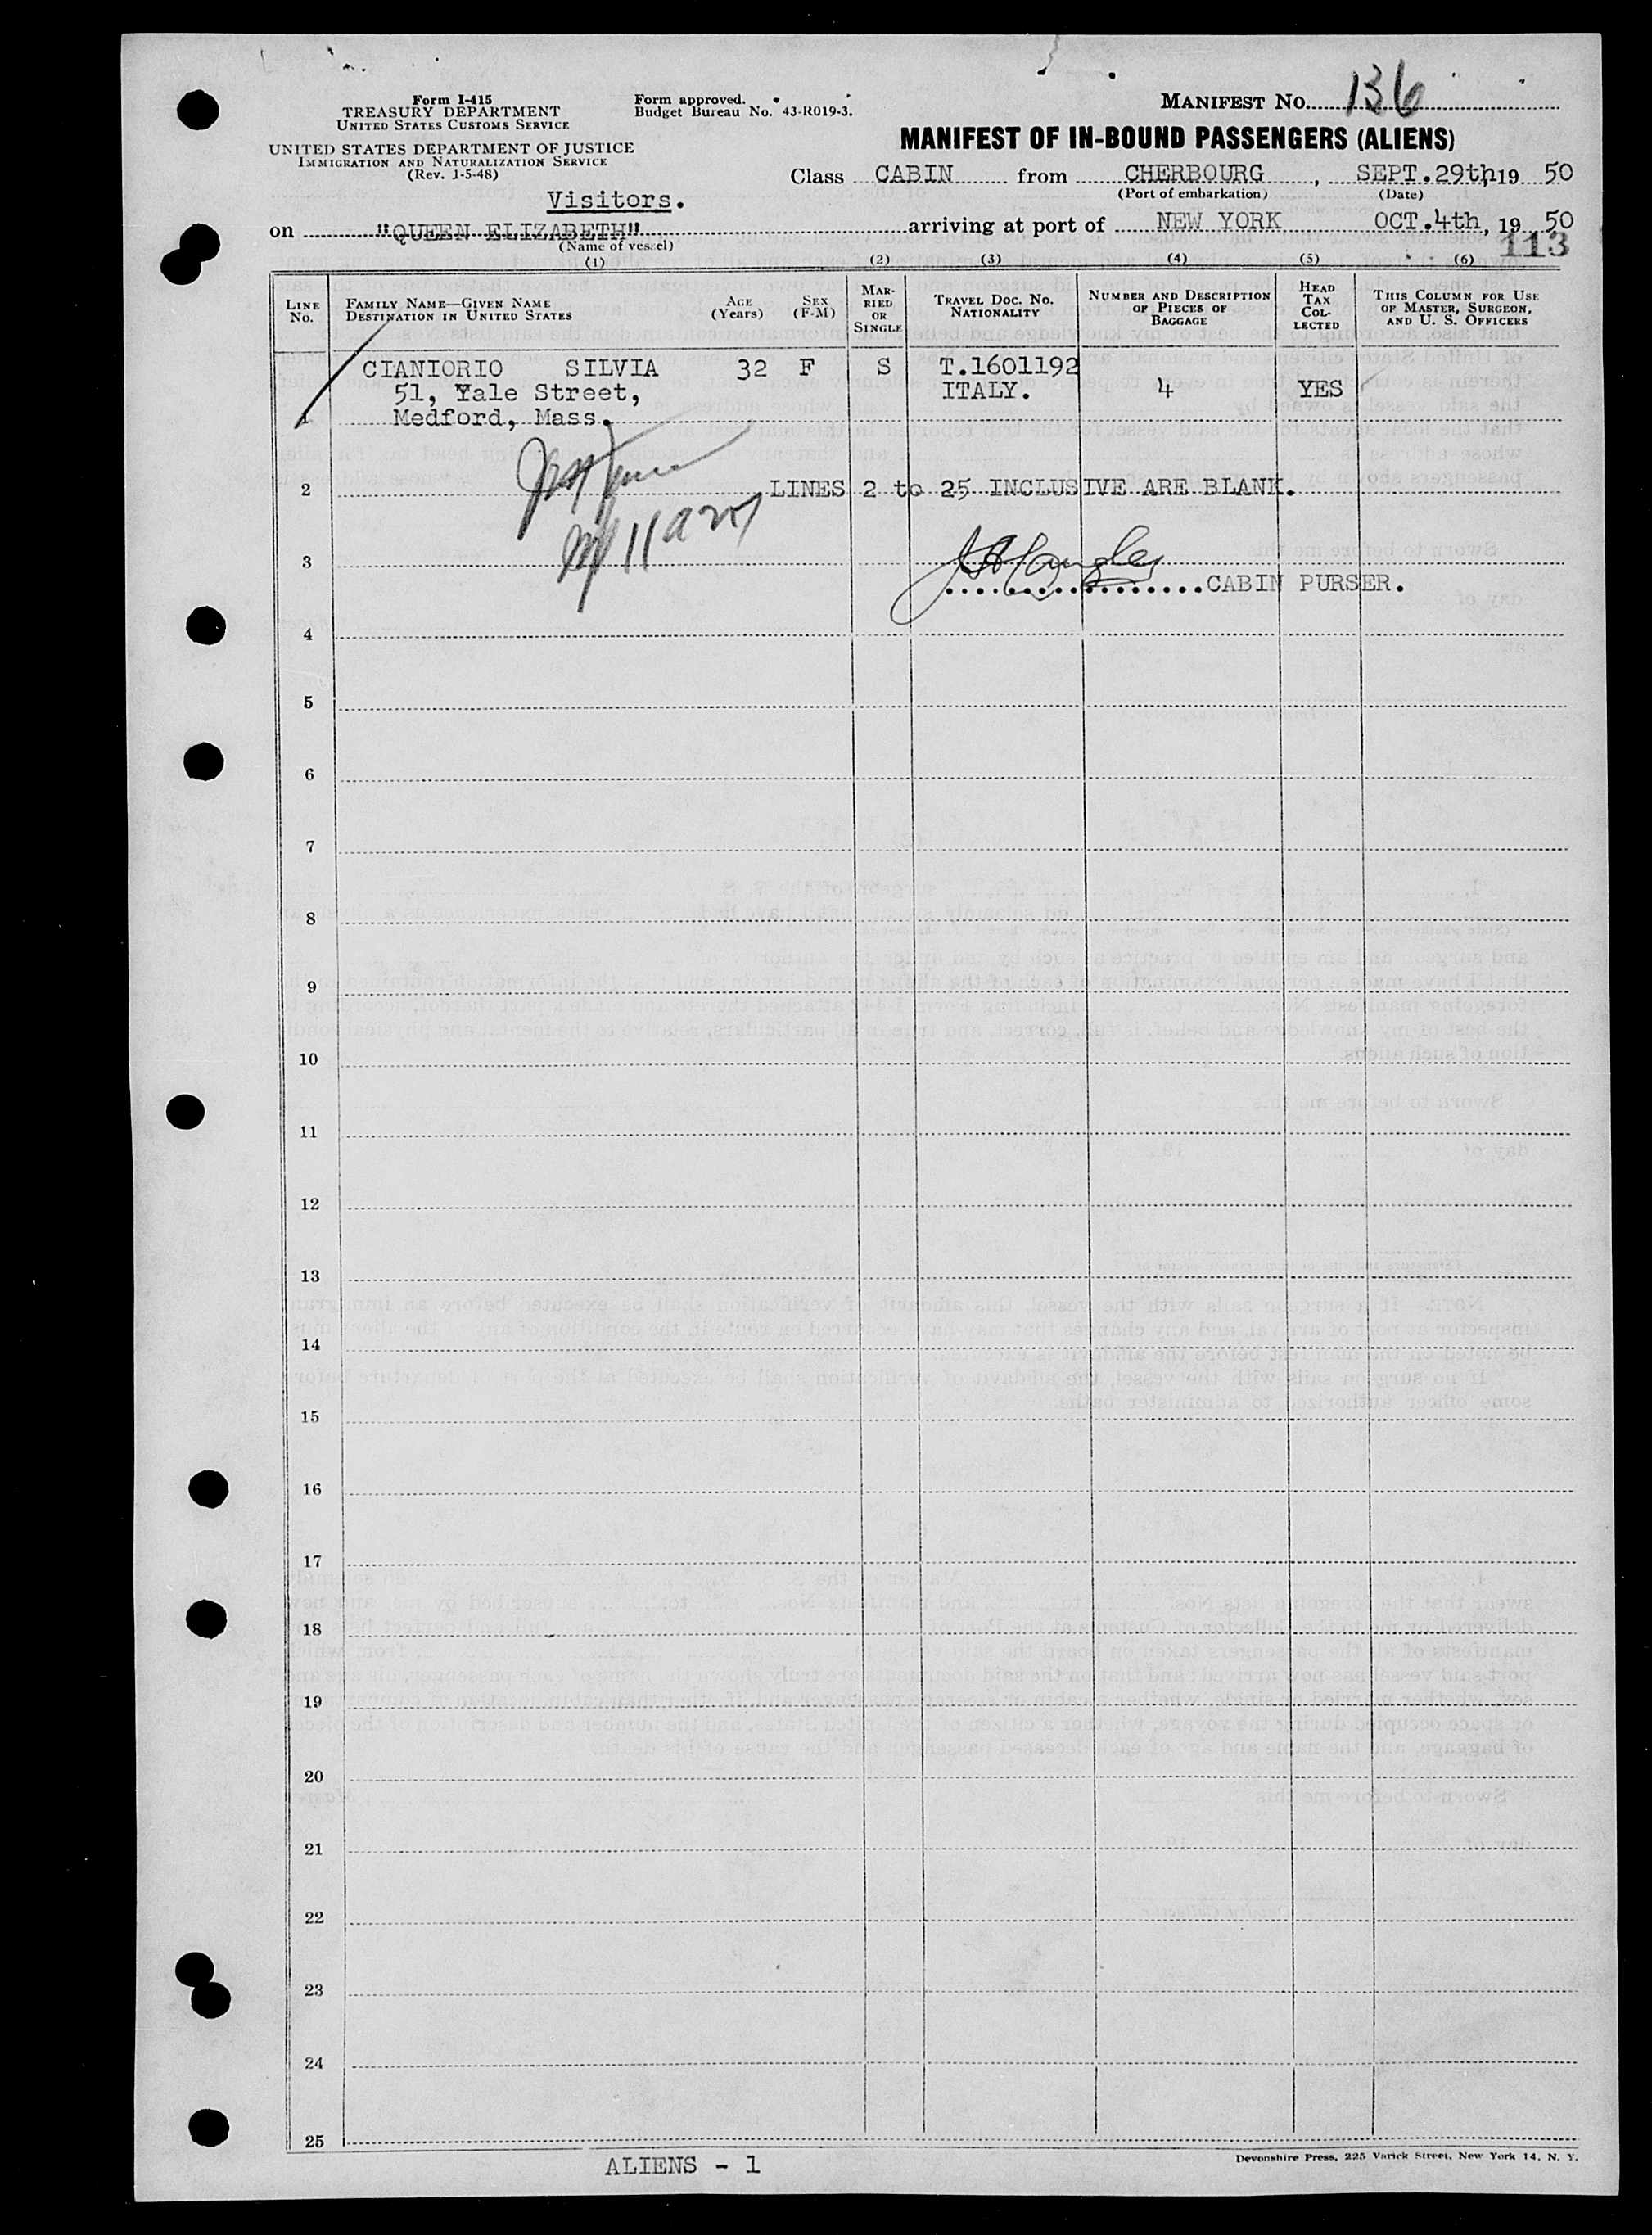 Form I-415
TREASURY DEPARTMENT
UNITED STATES CUSTOMS SERVICE
UNITED STATES DEPARTMENT OF JUSTICE
IMMIGRATION AND NATURALIZATION SERVICE
(Rev. 1-5-48)
Form approved.
Budget Bureau No. 43-R019-3.
MANIFEST No. 136
MANIFEST OF IN-BOUND PASSENGERS (ALIENS)
Class CABIN from CHERBOURG, SEPT.29th, 19 50
(Port of embarkation) (Date)
Visitors.
on "QUEEN ELIZABETH" arriving at port of NEW YORK OCT.4th, 19 50
(Name of vessel)
113
(1) (2) (3) (4) (5) (6)
LINE No. FAMILY NAME—GIVEN NAME DESTINATION IN UNITED STATES AGE (Years) SEX (F-M) MARRIED OR SINGLE TRAVEL DOC. NO. NATIONALITY NUMBER AND DESCRIPTION OF PIECES OF BAGGAGE HEAD TAX COLLECTED THIS COLUMN FOR USE OF MASTER, SURGEON, AND U. S. OFFICERS
CIANIORIO SILVIA 32 F S T.1601192
51, Yale Street, ITALY. 4 YES
1 Medford, Mass.
2 LINES 2 to 25 INCLUSIVE ARE BLANK.
3
CABIN PURSER.
4
5
6
7
8
9
10
11
12
13
14
15
16
17
18
19
20
21
22
23
24
25
ALIENS - 1
Devonshire Press, 225 Varick Street, New York 14, N. Y.